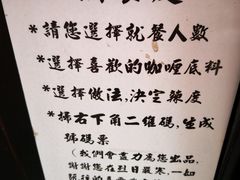 *請您選擇就餐人數
*選擇喜歡的咖喱底料
*選擇做法,決定辣度
*掃右下角二維碼,生成
號碼票
(我們會盡力為您出品,
謝謝您在烈日嚴寒,一如